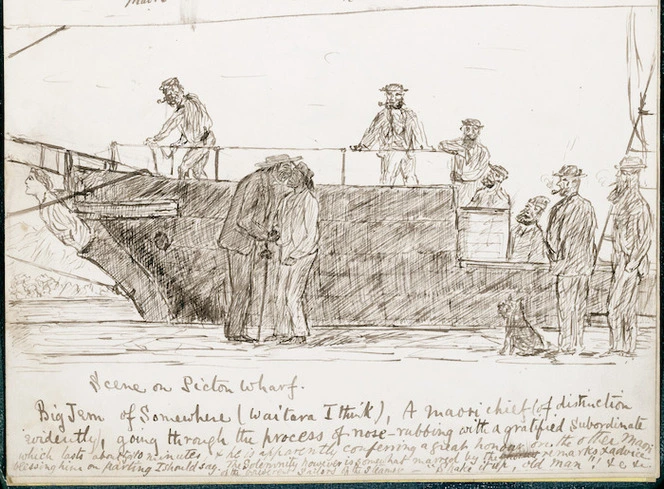 Maori
Scene on Picton Wharf.
Big Jem of Somewhere (Waitara I think), A maori chief (of distinction
evidently), going through the process of nose-rubbing with a gratified Subordinate
which lasts about 5/10 minutes, & he is apparently conferring a great honour on the other Maori
blessing him on parting I should say. The Solemnity however is somewhat marred by the remarks & advice
of the Sailors in the Steamer — "Shake it up, old man"! &c, &c.